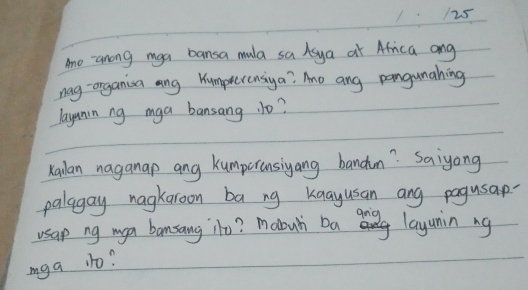 / . /25
Ano-anong mga bansa mula sa Asya at Africa ang
nag-organisa ang Kumperensiya? Ano ang pangunahing
layunin ng mga bansang ito?
Kailan naganap ang kumperensiyang bandun? Saiyong
palagay nagkaroon ba ng kaayusan ang pagusap-
usap ng mga bansang ito? mabuti ba ang layunin ng
mga ito?